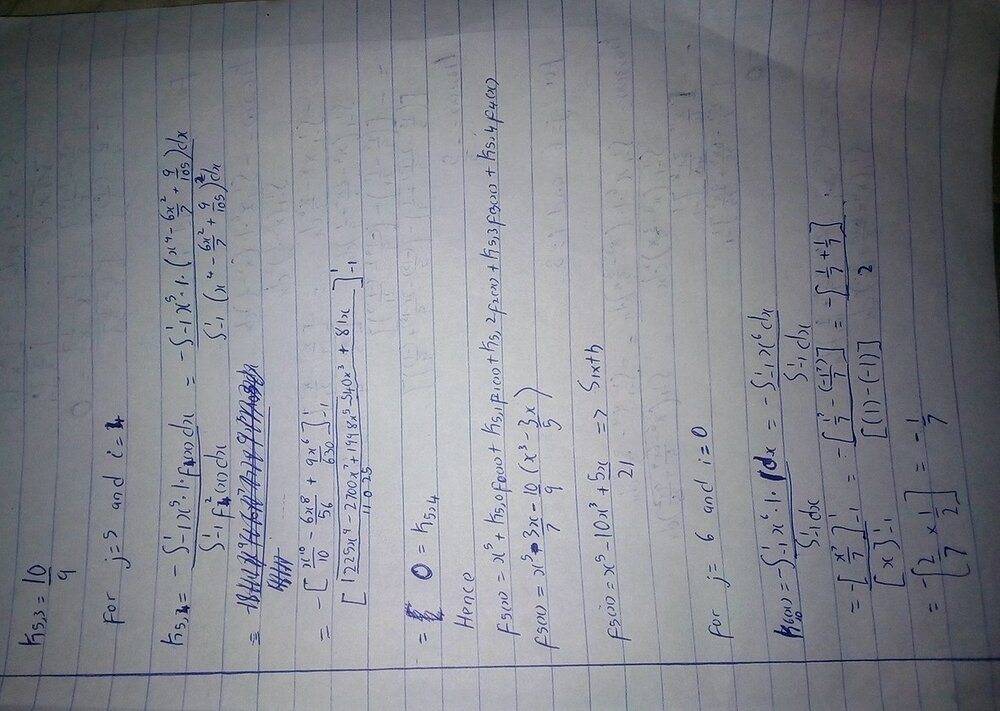 K5,3 = 10/9
for j=5 and i=4
K5,4 = - ∫-1^1 x^5 · 1 · f4(x) dx / ∫-1^1 f4^2(x) dx = - ∫-1^1 x^5 · 1 · (x^4 - 6x^2/7 + 9/105) dx / ∫-1^1 (x^4 - 6x^2/7 + 9/105)^2 dx
=
= - [x^10/10 - 6x^8/56 + 9x^6/630]^1_-1 / [225x^9 - 2700x^7 + 1998x^5 - 540x^3 + 81x / 11025]^1_-1
= 0 = K5,4
Hence
f5(x) = x^5 + K5,0 f0(x) + K5,1 f1(x) + K5,2 f2(x) + K5,3 f3(x) + K5,4 f4(x)
f5(x) = x^5 - 3x/7 - 10/9 (x^3 - 3x/5)
f5(x) = x^5 - 10x^3 + 5x/21 => Sixth
for j= 6 and i=0
= - ∫-1^1 x^6 · 1 · dx / ∫-1^1 dx = - ∫-1^1 x^6 dx / ∫-1^1 dx
= - [x^7/7]^1_-1 / [x]^1_-1 = - [1^7/7 - (-1^7)/7] / [(1) - (-1)] = - [1/7 + 1/7] / 2
= - [2/7 × 1/2] = - 1/7